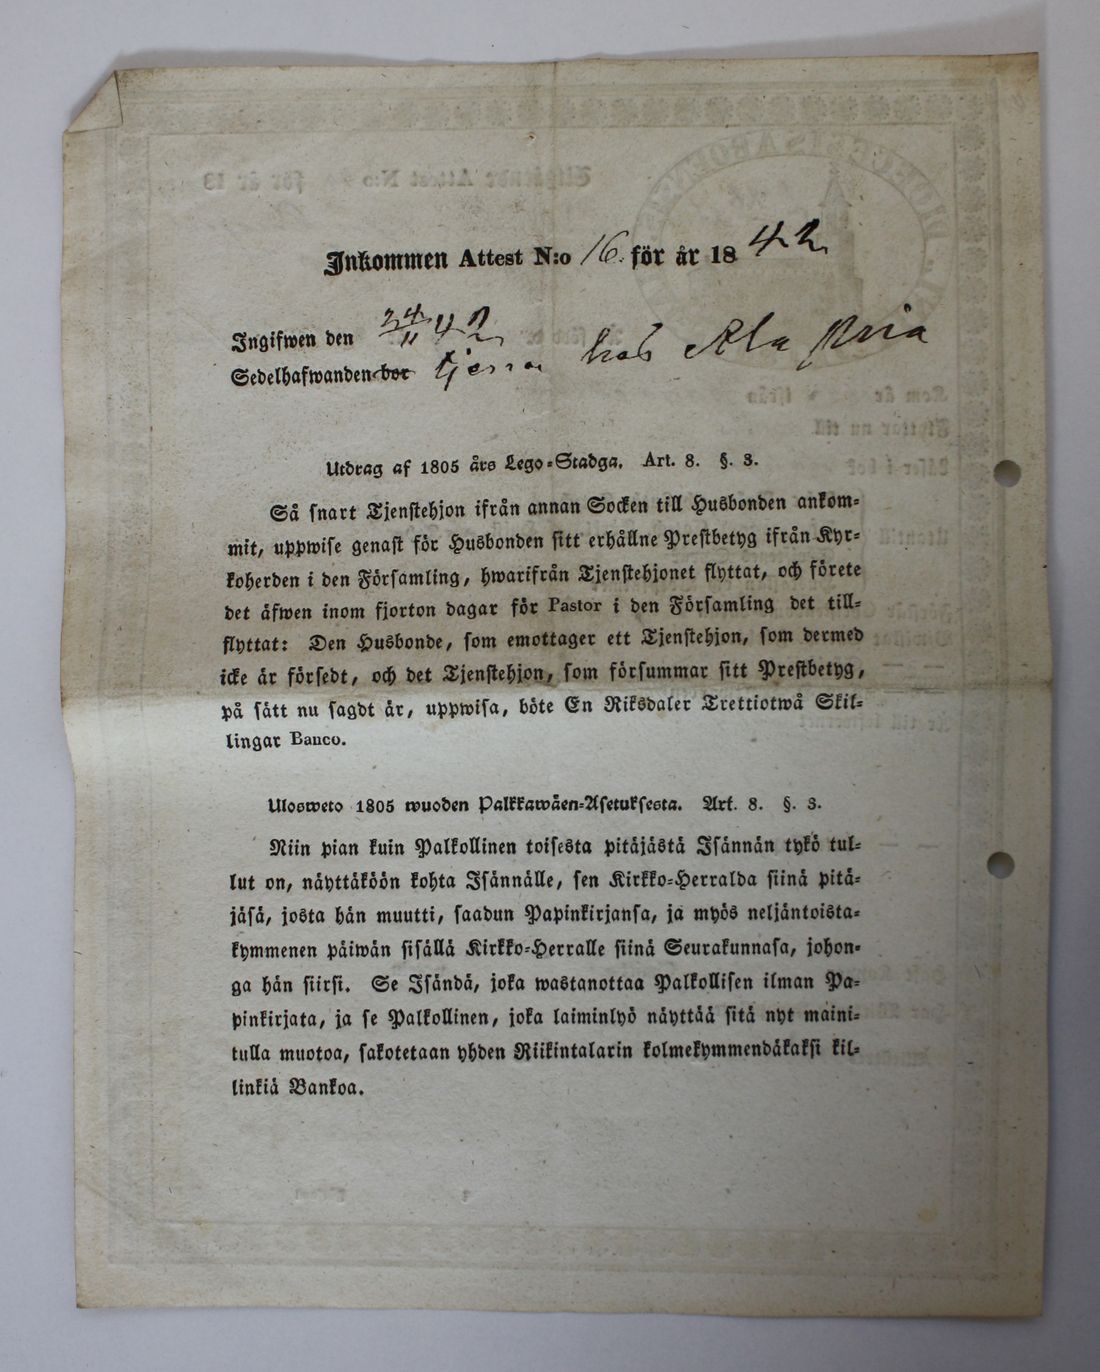 Inkommen Attest N:o 16. för år 1842
Ingifwen den 24/11 42
Sedelhafwanden bor tjenar hos Ala
Utdrag af 1805 års Lego-Stadga. Art. 8. §. 3.
Så snart Tjenstehjon ifrån annan Socken till Husbonden ankom-
mit, uppwise genast för Husbonden sitt erhållne Prestbetyg ifrån Kyr-
koherden i den Församling, hwarifrån Tjenstehjonet flyttat, och förete
det äfwen inom fjorton dagar för Pastor i den Församling det till-
flyttat: Den Husbonde, som emottager ett Tjenstehjon, som dermed
icke är försedt, och det Tjenstehjon, som försummar sitt Prestbetyg,
på sätt nu sagdt är, uppwisa, böte En Riksdaler Trettiotwå Skil-
lingar Banco.
Ulosweto 1805 wuoden Palkkawäen-Asetuksesta. Art. 8. §. 3.
Niin pian kuin Palkollinen toisesta pitäjästä Isännän tykö tul-
lut on, näyttäköön kohta Isännälle, sen Kirkko-Herralda siinä pitä-
jäsä, josta hän muutti, saadun Papinkirjansa, ja myös neljäntoista-
kymmenen päiwän sisällä Kirkko-Herralle siinä Seurakunnasa, johon-
ga hän siirsi. Se Isändä, joka wastanottaa Palkollisen ilman Pa-
pinkirjata, ja se Palkollinen, joka laiminlyö näyttää sitä nyt maini-
tulla muotoa, sakotetaan yhden Riikintalarin kolmekymmendäkaksi kil-
linkiä Bankoa.